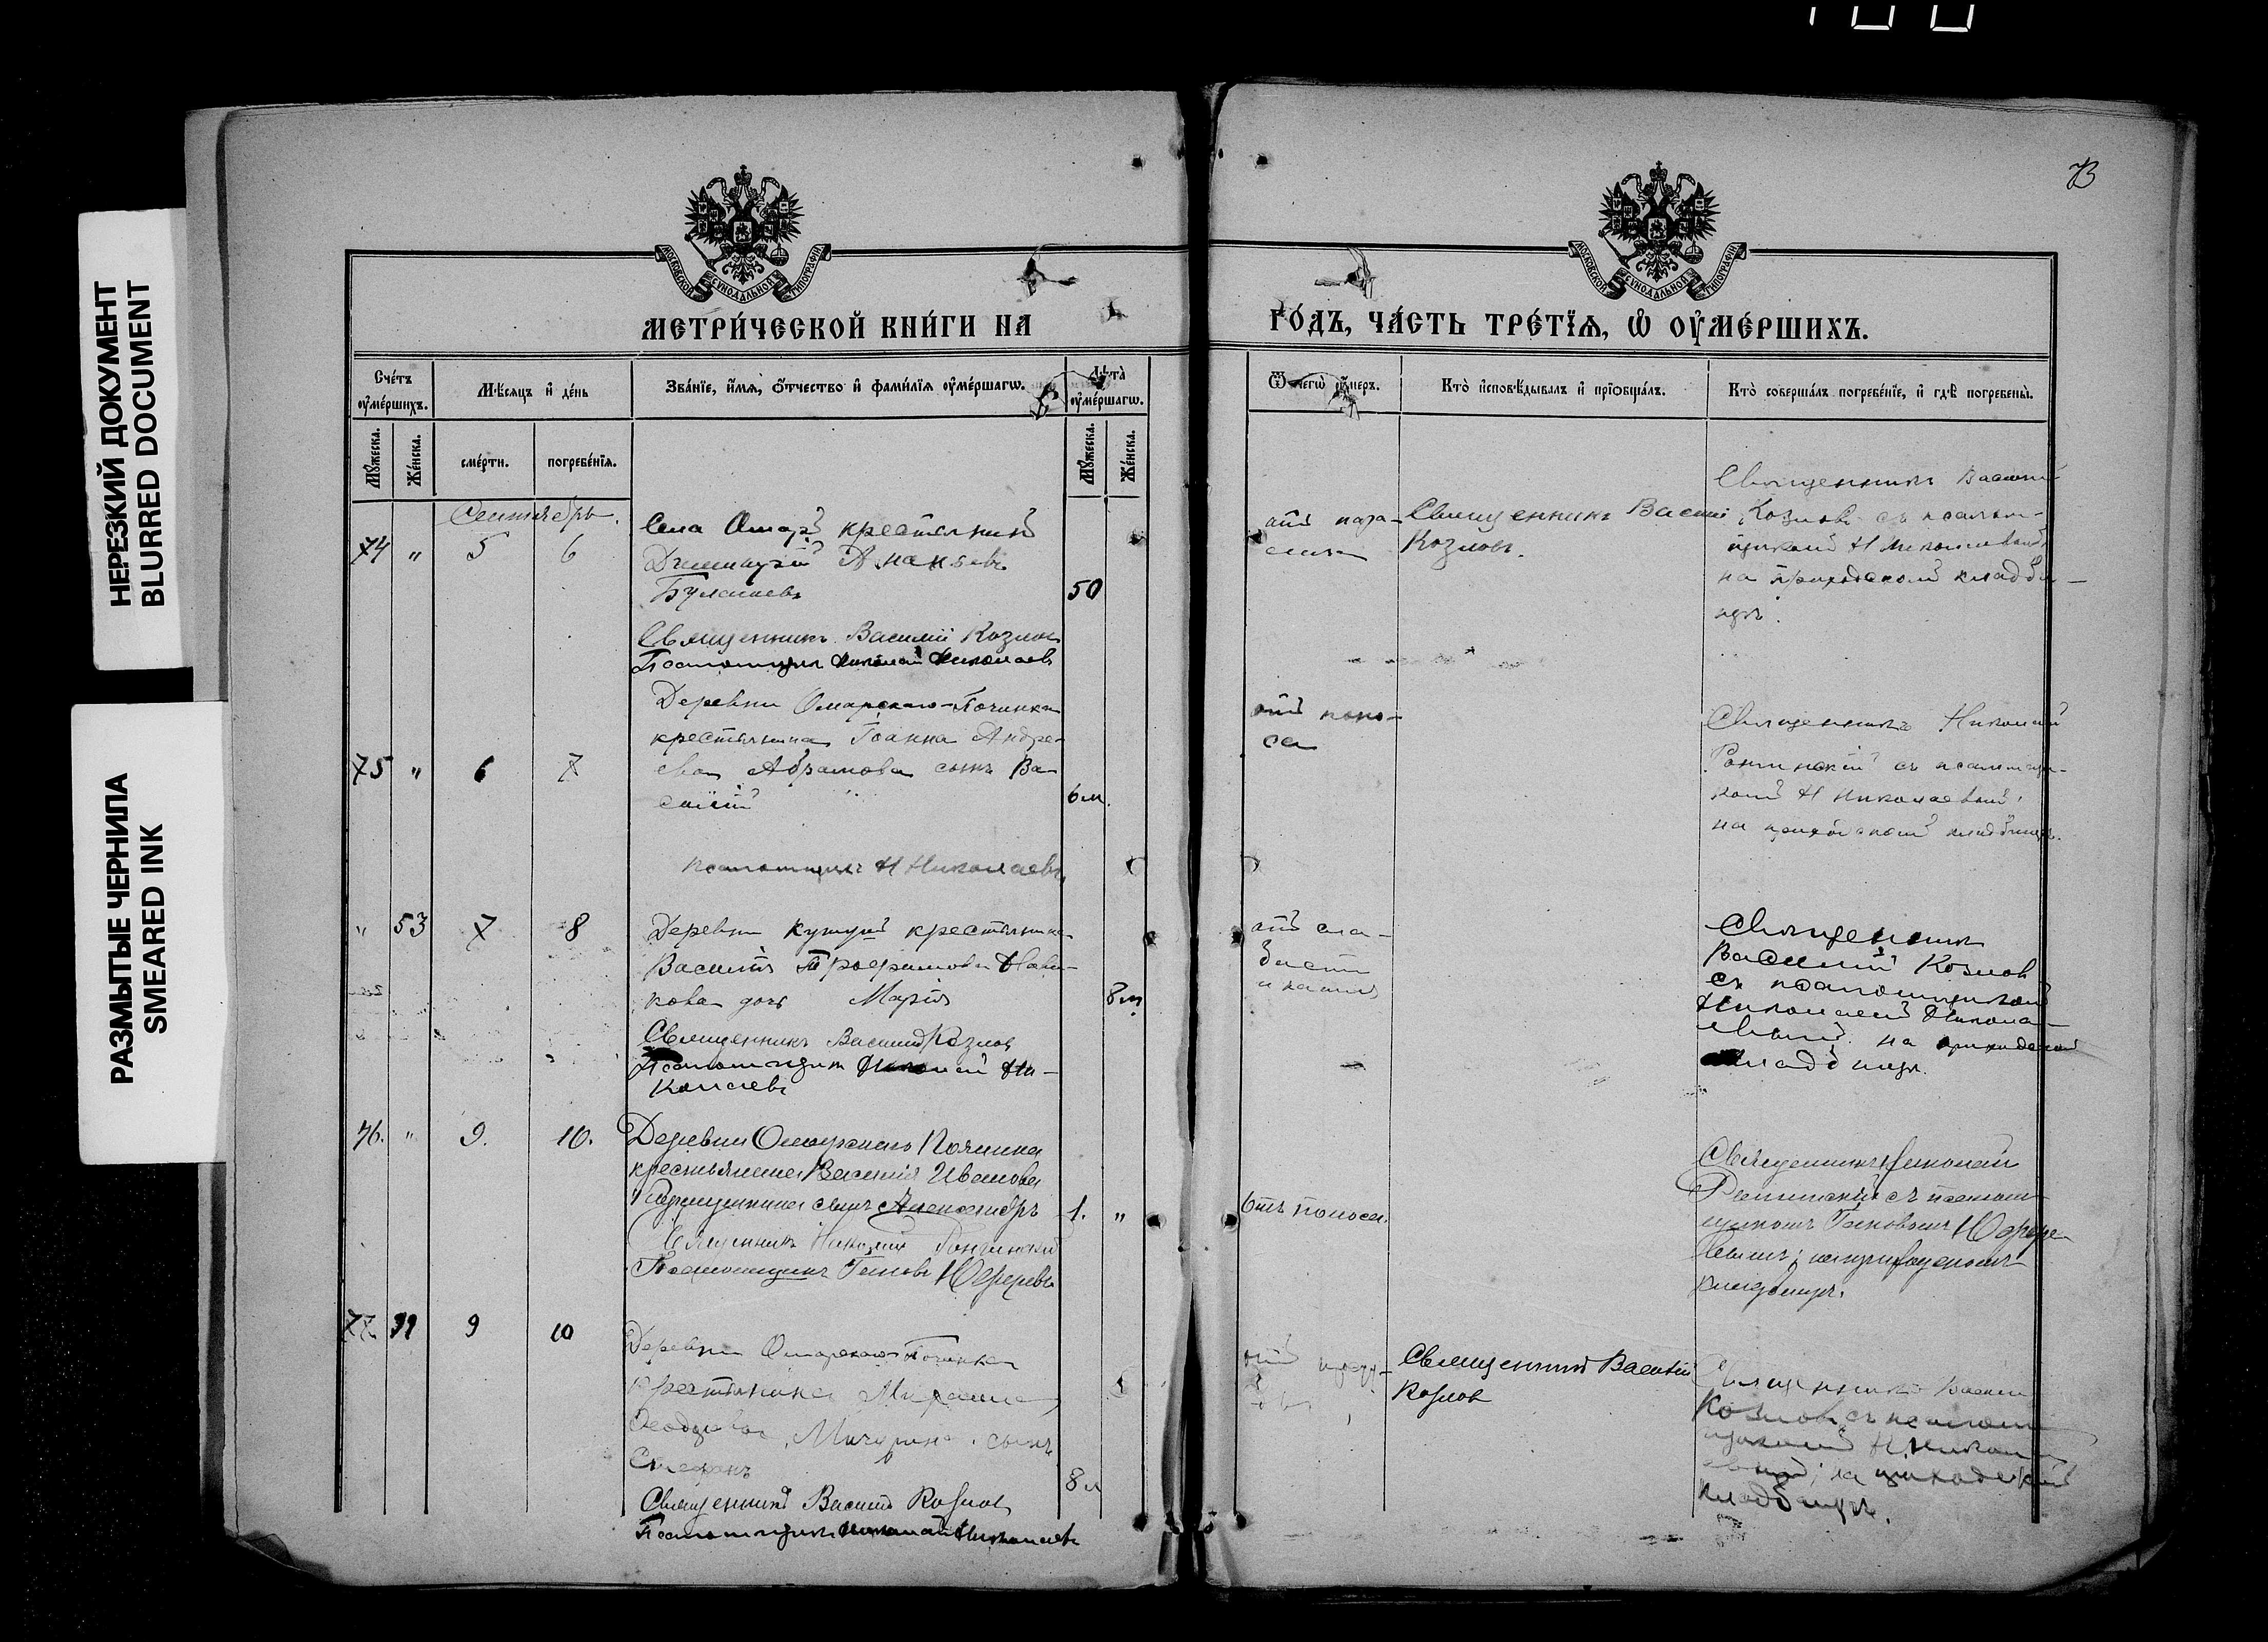 НЕРЕЗКИЙ ДОКУМЕНТ
BLURRED DOCUMENT
РАЗМЫТЫЕ ЧЕРНИЛА
SMEARED INK
73
МОСКОВСКОЙ СУНОДАЛЬНОЙ ТИПОГРАФІИ
МОСКОВСКОЙ СУНОДАЛЬНОЙ ТИПОГРАФІИ
МЕТРИ́ЧЕСКОЙ КНИ́ГИ НА
ГО́ДЪ, ЧА́СТЬ ТРЕ́ТЇЯ, Ѡ ОУМЕ́РШИХЪ.
Сче́тъ оуме́ршихъ.
Мѣ́сяцъ и де́нь
Зва́нїе, и́мя, ѻ́тчество и фами́лїя оуме́ршагѡ.
Лѣ́та оуме́ршагѡ.
Ѿ чегѡ̀ оу́меръ.
Кто̀ и҆сповѣ́дывалъ и прїѡбща́лъ.
Кто̀ соверша́лъ погребе́нїе, и гдѣ̀ погребены̀.
Му́жеска.
Же́нска.
сме́рти.
погребе́нїя.
Му́жеска.
Же́нска.
Сентябрь.
74 " 5 6
Села Омаръ крестьянинъ
Димитрій Ананьевъ
50
Священникъ Василій Козловъ
Псаломщикъ Николай Николаевъ
Священникъ Василій
Козловъ.
Священникъ Василій
Козловъ съ псалом-
щикомъ Н Николаевымъ
на приходскомъ кладби-
щѣ.
75 " 6 7
Деревни Омарскаго-Починка
крестьянина Іоанна Андре-
ева Абрамова сынъ Ва-
силій
6 м.
псаломщикъ Н Николаевъ
отъ поно-
са
Священникъ Николай
съ псаломщи-
комъ Н Николаевымъ,
на приходскомъ кладбищѣ.
" 53 7 8
Деревни крестьянина
Василія Трофимова
кова дочь Марія
8 м.
Священникъ Василій Козлов
Псаломщикъ Николай Ни-
колаевъ
отъ сла-
бости
Священникъ
Василій Козлов
съ псаломщикомъ
Николаемъ Никола-
евымъ. на приходскомъ
кладбищѣ.
76. " 9. 10.
Деревни Омарскаго Починка
крестьянина Василія Иванова
сынъ Александръ
1. "
Священникъ Николай
Псаломщикъ Юферевъ
Отъ поноса.
Священникъ Николай
съ псалом-
щикомъ Юфере-
вымъ; на приходскомъ
кладбищѣ.
77. 9 10
Деревни Омарскаго-Починка
крестьянина Михаила
Мичурина сынъ
Стефанъ
8 л
Священникъ Василій Козлов
Псаломщикъ Николай Николаевъ
Священникъ Василій
Козлов
Священникъ Василій
Козловъ съ псалом-
щикомъ Н. Никола-
евымъ; на приходскомъ
кладбищѣ.